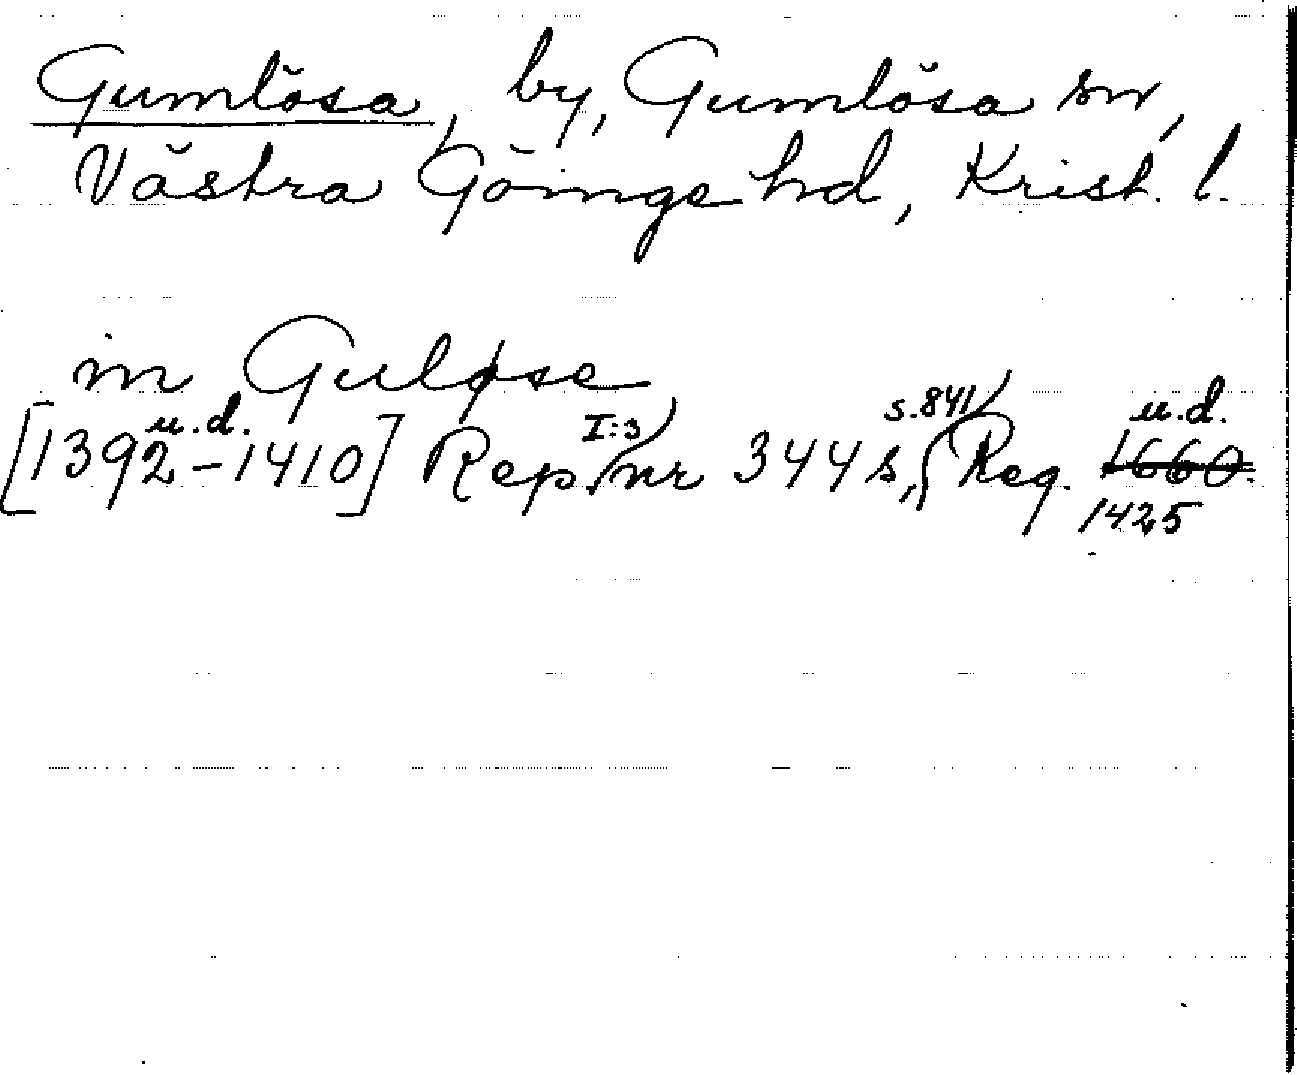 Gumlösa, by, Gumlösa sn,
Västra Göinge hd, Krist. l.
in Guløse
[1392 u.d. - 1410] Rep. I:3 nr 344 s, s. 841 Reg. u.d. 1660.
1425